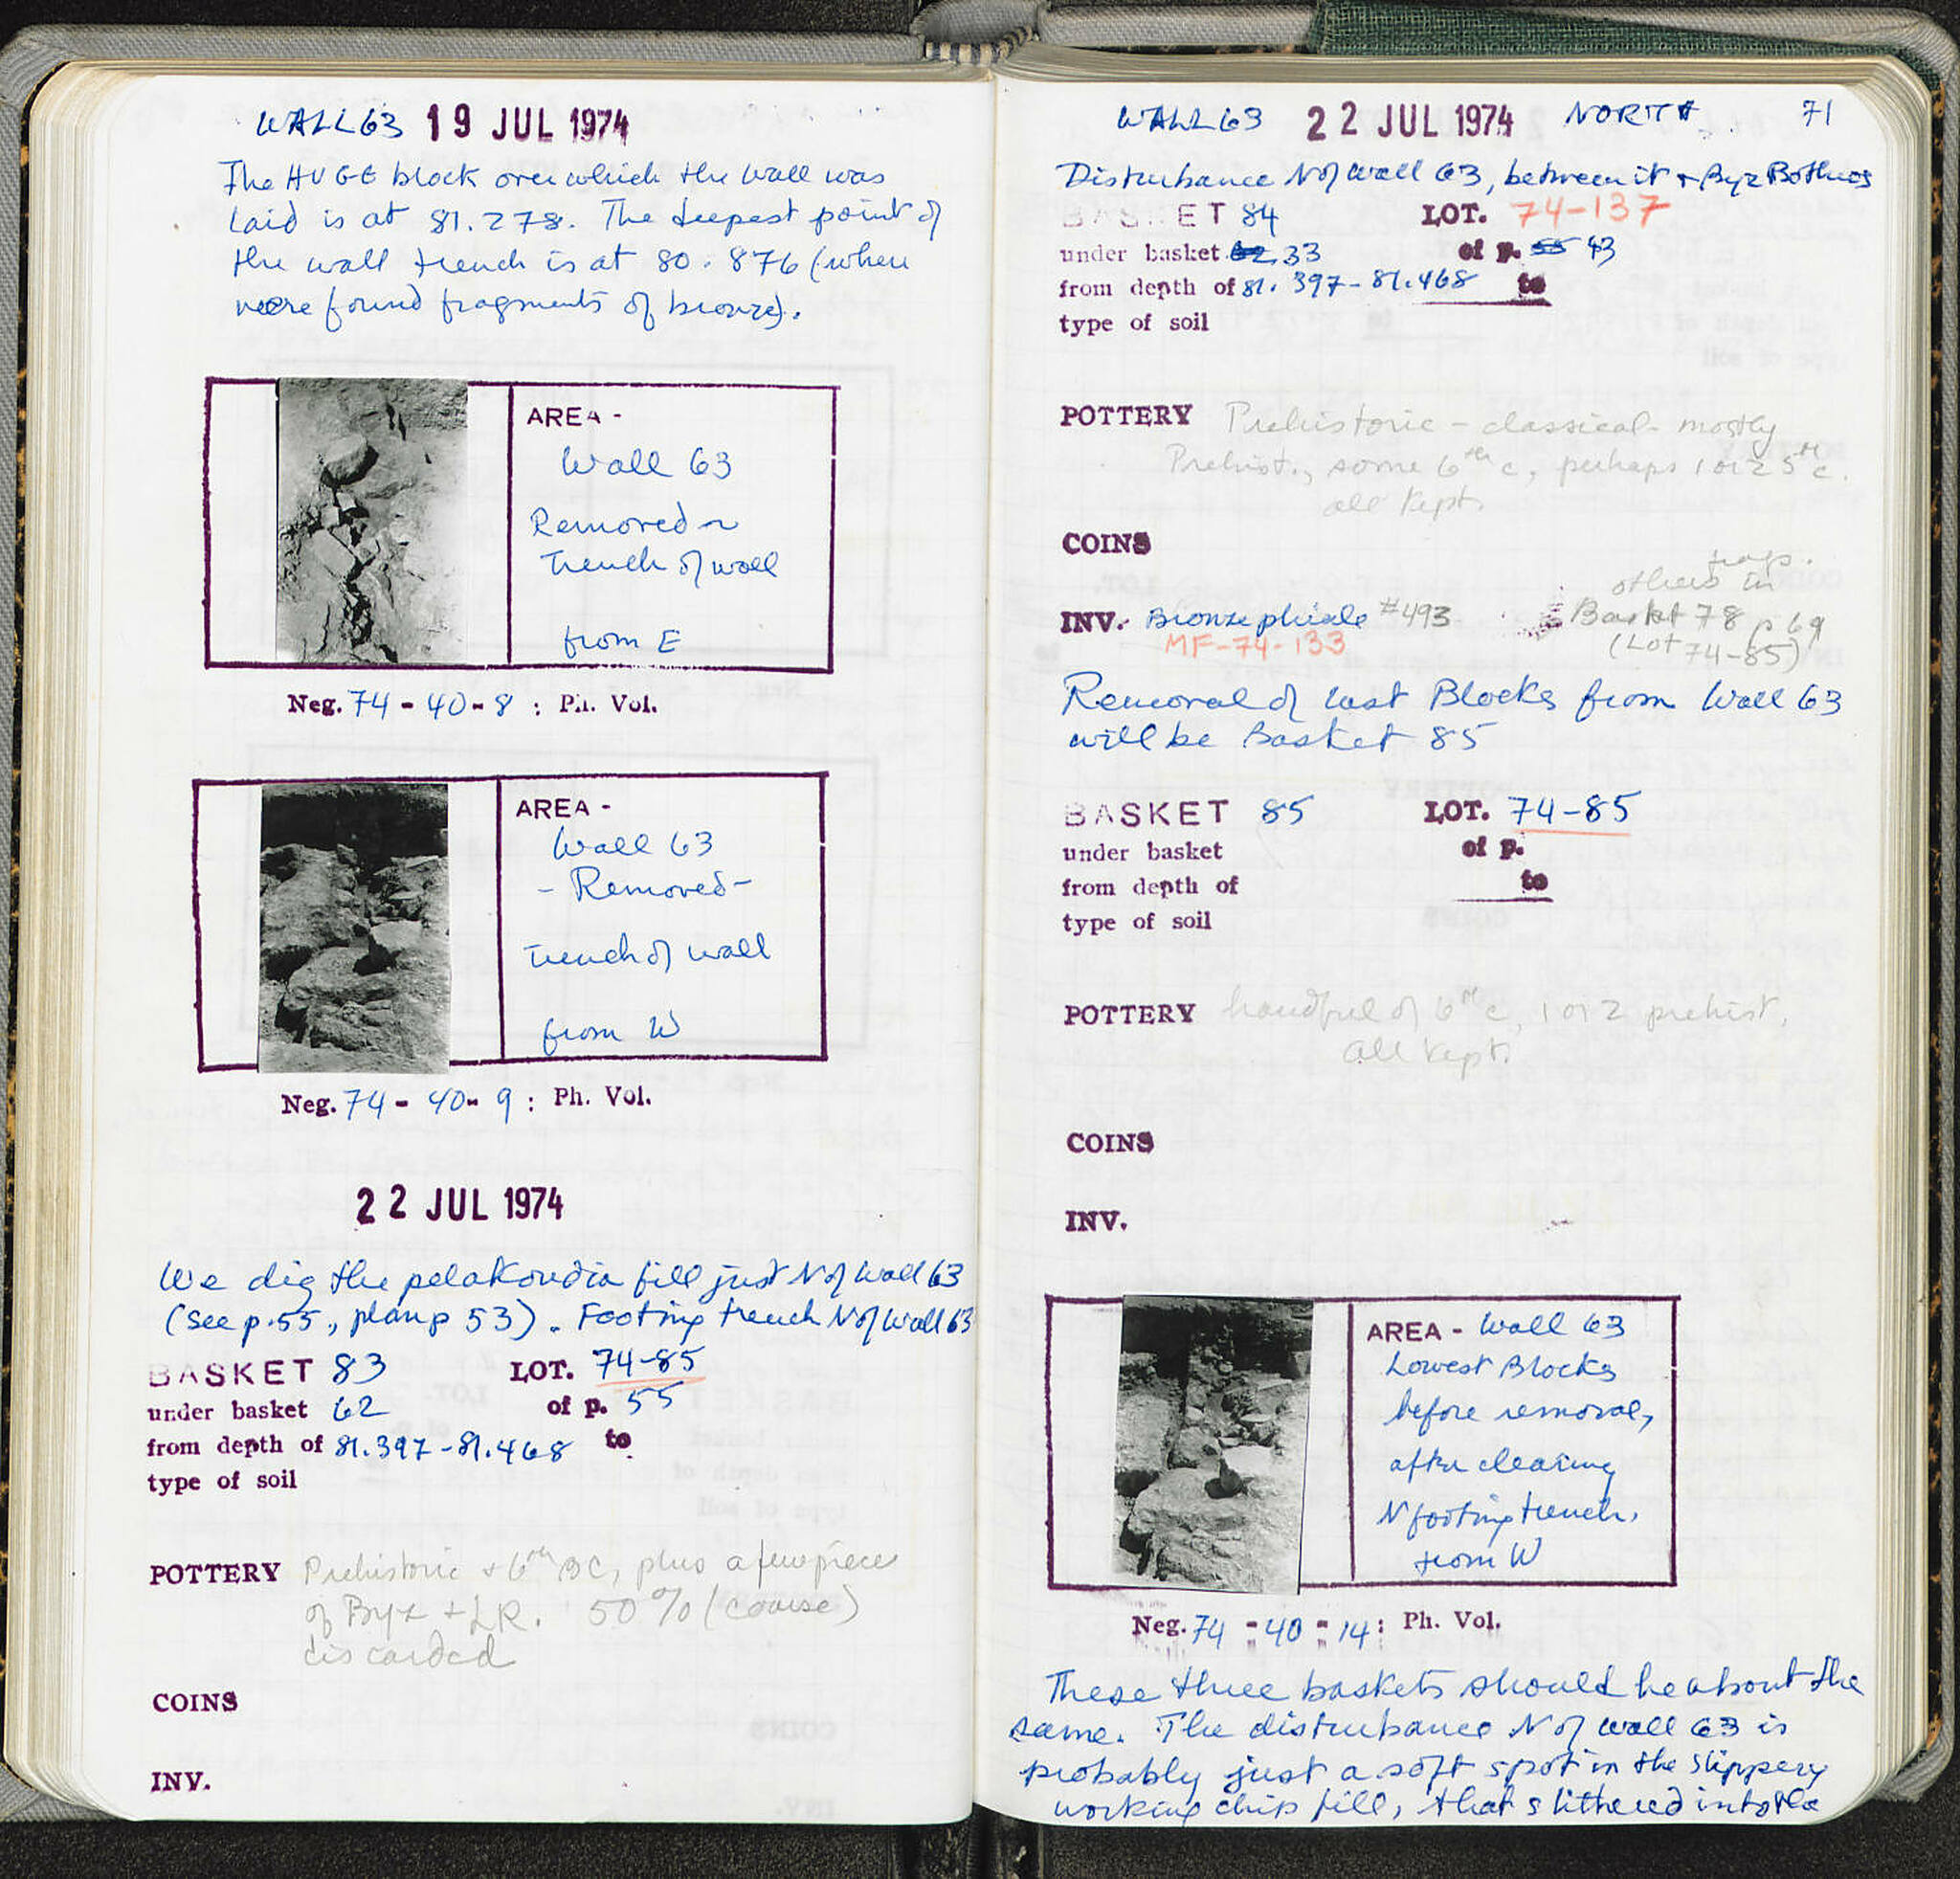 WALL 63 19 JUL 1974
The HUGE block over which the wall was
laid is at 81.278. The deepest point of
the wall trench is at 80.876 (where
were found fragments of bronze).
AREA -
Wall 63
Removed ~
Trench of wall
from E
Neg. 74 - 40 - 8 : Ph. Vol.
AREA -
Wall 63
- Removed -
Trench of wall
from W
Neg. 74 - 40 - 9 : Ph. Vol.
22 JUL 1974
We dig the pelakoudia fill just N of Wall 63
(see p. 55, plan p 53). Footing trench N of Wall 63
BASKET 83 LOT. 74-85
under basket 62 of p. 55
from depth of 81.397-81.468 to
type of soil
POTTERY Prehistoric + 6th BC, plus a few pieces
of Byz + LR. 50% (coarse)
discarded
COINS
INV.
WALL 63 22 JUL 1974 NORTH 71
Disturbance N of Wall 63, between it + Byz Bothros
BASKET 84 LOT. 74-137
under basket 62 33 of p. 55 43
from depth of 81.397-81.468 to
type of soil
POTTERY Prehistoric - classical - mostly
Prehist., some 6th c, perhaps 1 or 2 5th c.
all kept.
COINS
frags.
others in
INV. Bronze phiale #493 Basket 78 p 69
MF-74-133 (Lot 74-85)
Removal of last Blocks from Wall 63
will be Basket 85
BASKET 85 LOT. 74-85
under basket of p.
from depth of to
type of soil
POTTERY handful of 6th c, 1 or 2 prehist.
all kept.
COINS
INV.
AREA - Wall 63
Lowest Blocks
before removal,
after clearing
N footing trench,
from W
Neg. 74 - 40 - 14 : Ph. Vol.
These three baskets should be about the
same. The disturbance N of wall 63 is
probably just a soft spot in the slippery
working chip fill, that slithered into the